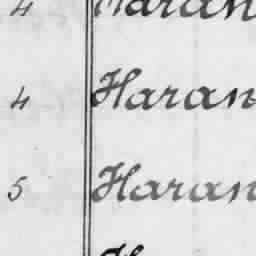 4 Haran
4 Haran
5 Haran